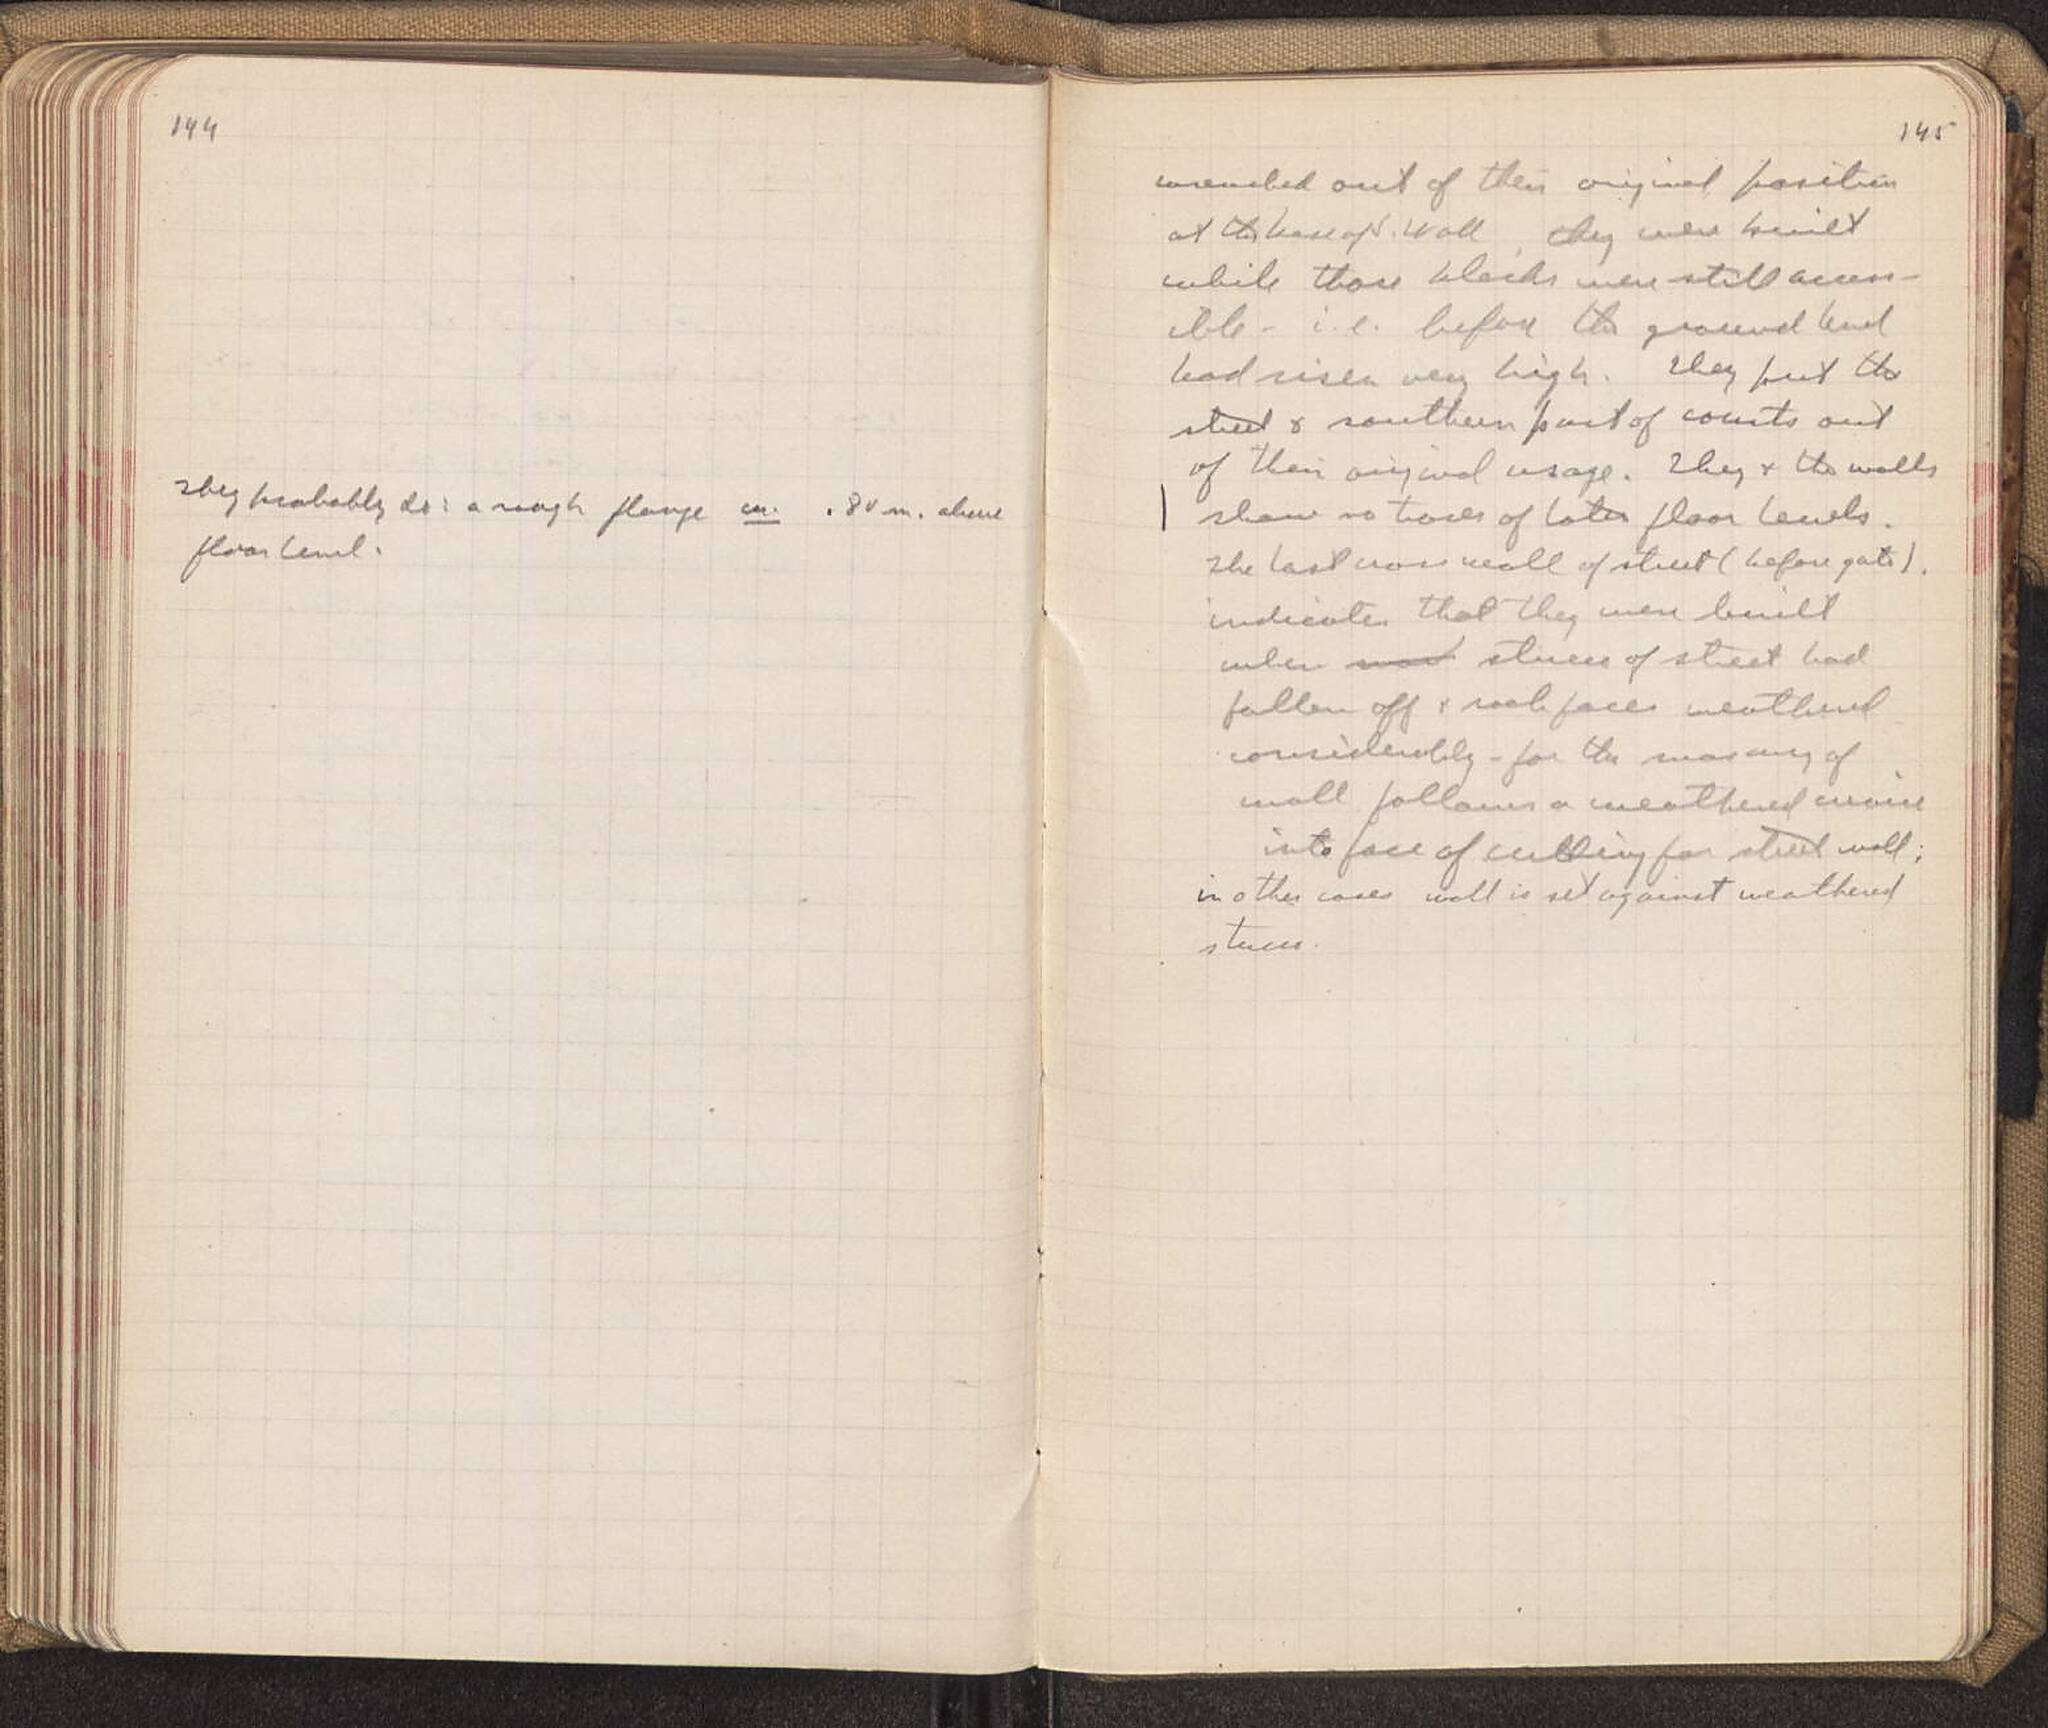 144
They probably do: a rough flange ca. .80 m. above
floor level.
145
wrenched out of their original position
at the base of S. Wall, they were built
while those blocks were still acces-
ible - i.e. before the ground level
had risen very high. They put the
street & southern part of courts out
of their original usage. They & the walls
show no traces of later floor levels.
The last cross wall of street (before gate).
indicates that they were built
when stucco of street had
fallen off & rock faces weathered
considerably - for the masonry of
wall follows a weathered crevice
into face of cutting for street wall;
in other cases wall is set against weathered
stucco.